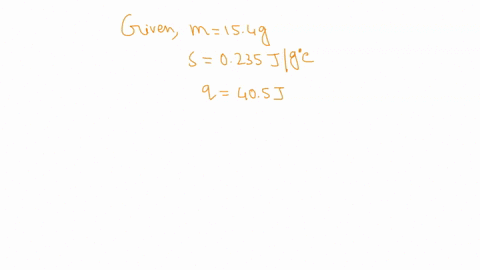 Given, m = 15.4g
s = 0.235 J/g°C
q = 40.5J